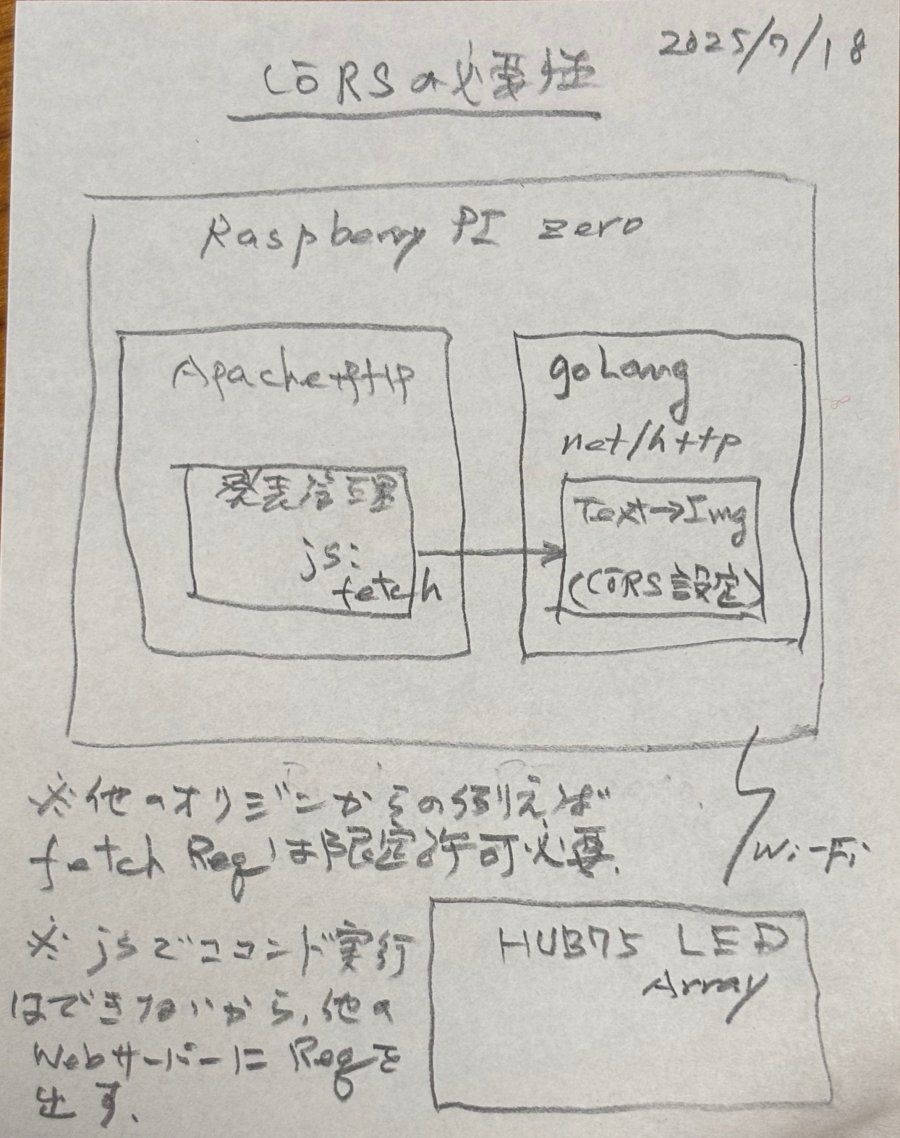 2025/7/18
CORSの必要性
Raspberry PI zero
Apache+PHP
発表管理
js:
fetch
goLang
net/http
Text→Img
(CORS設定)
※他のオリジンからの例えば
fetch Reqは限定許可必要.
Wi-Fi
※jsでココンド実行
はできないから,他の
Webサーバーに Reqを
出す.
HUB75 LED
Array